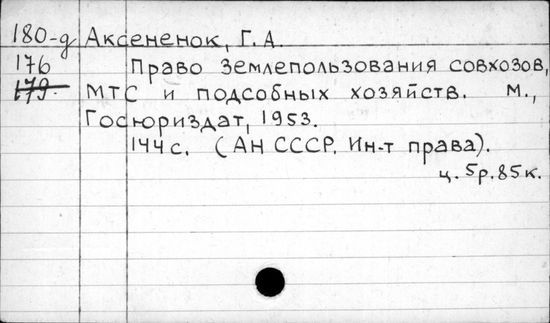 180-д Аксененок, Г.А.
176 Право землепользования совхозов,
179. МТС и подсобных хозяйств. М.,
Госюриздат, 1953.
144 с. (АН СССР. Ин-т права).
ц. 5р.85к.